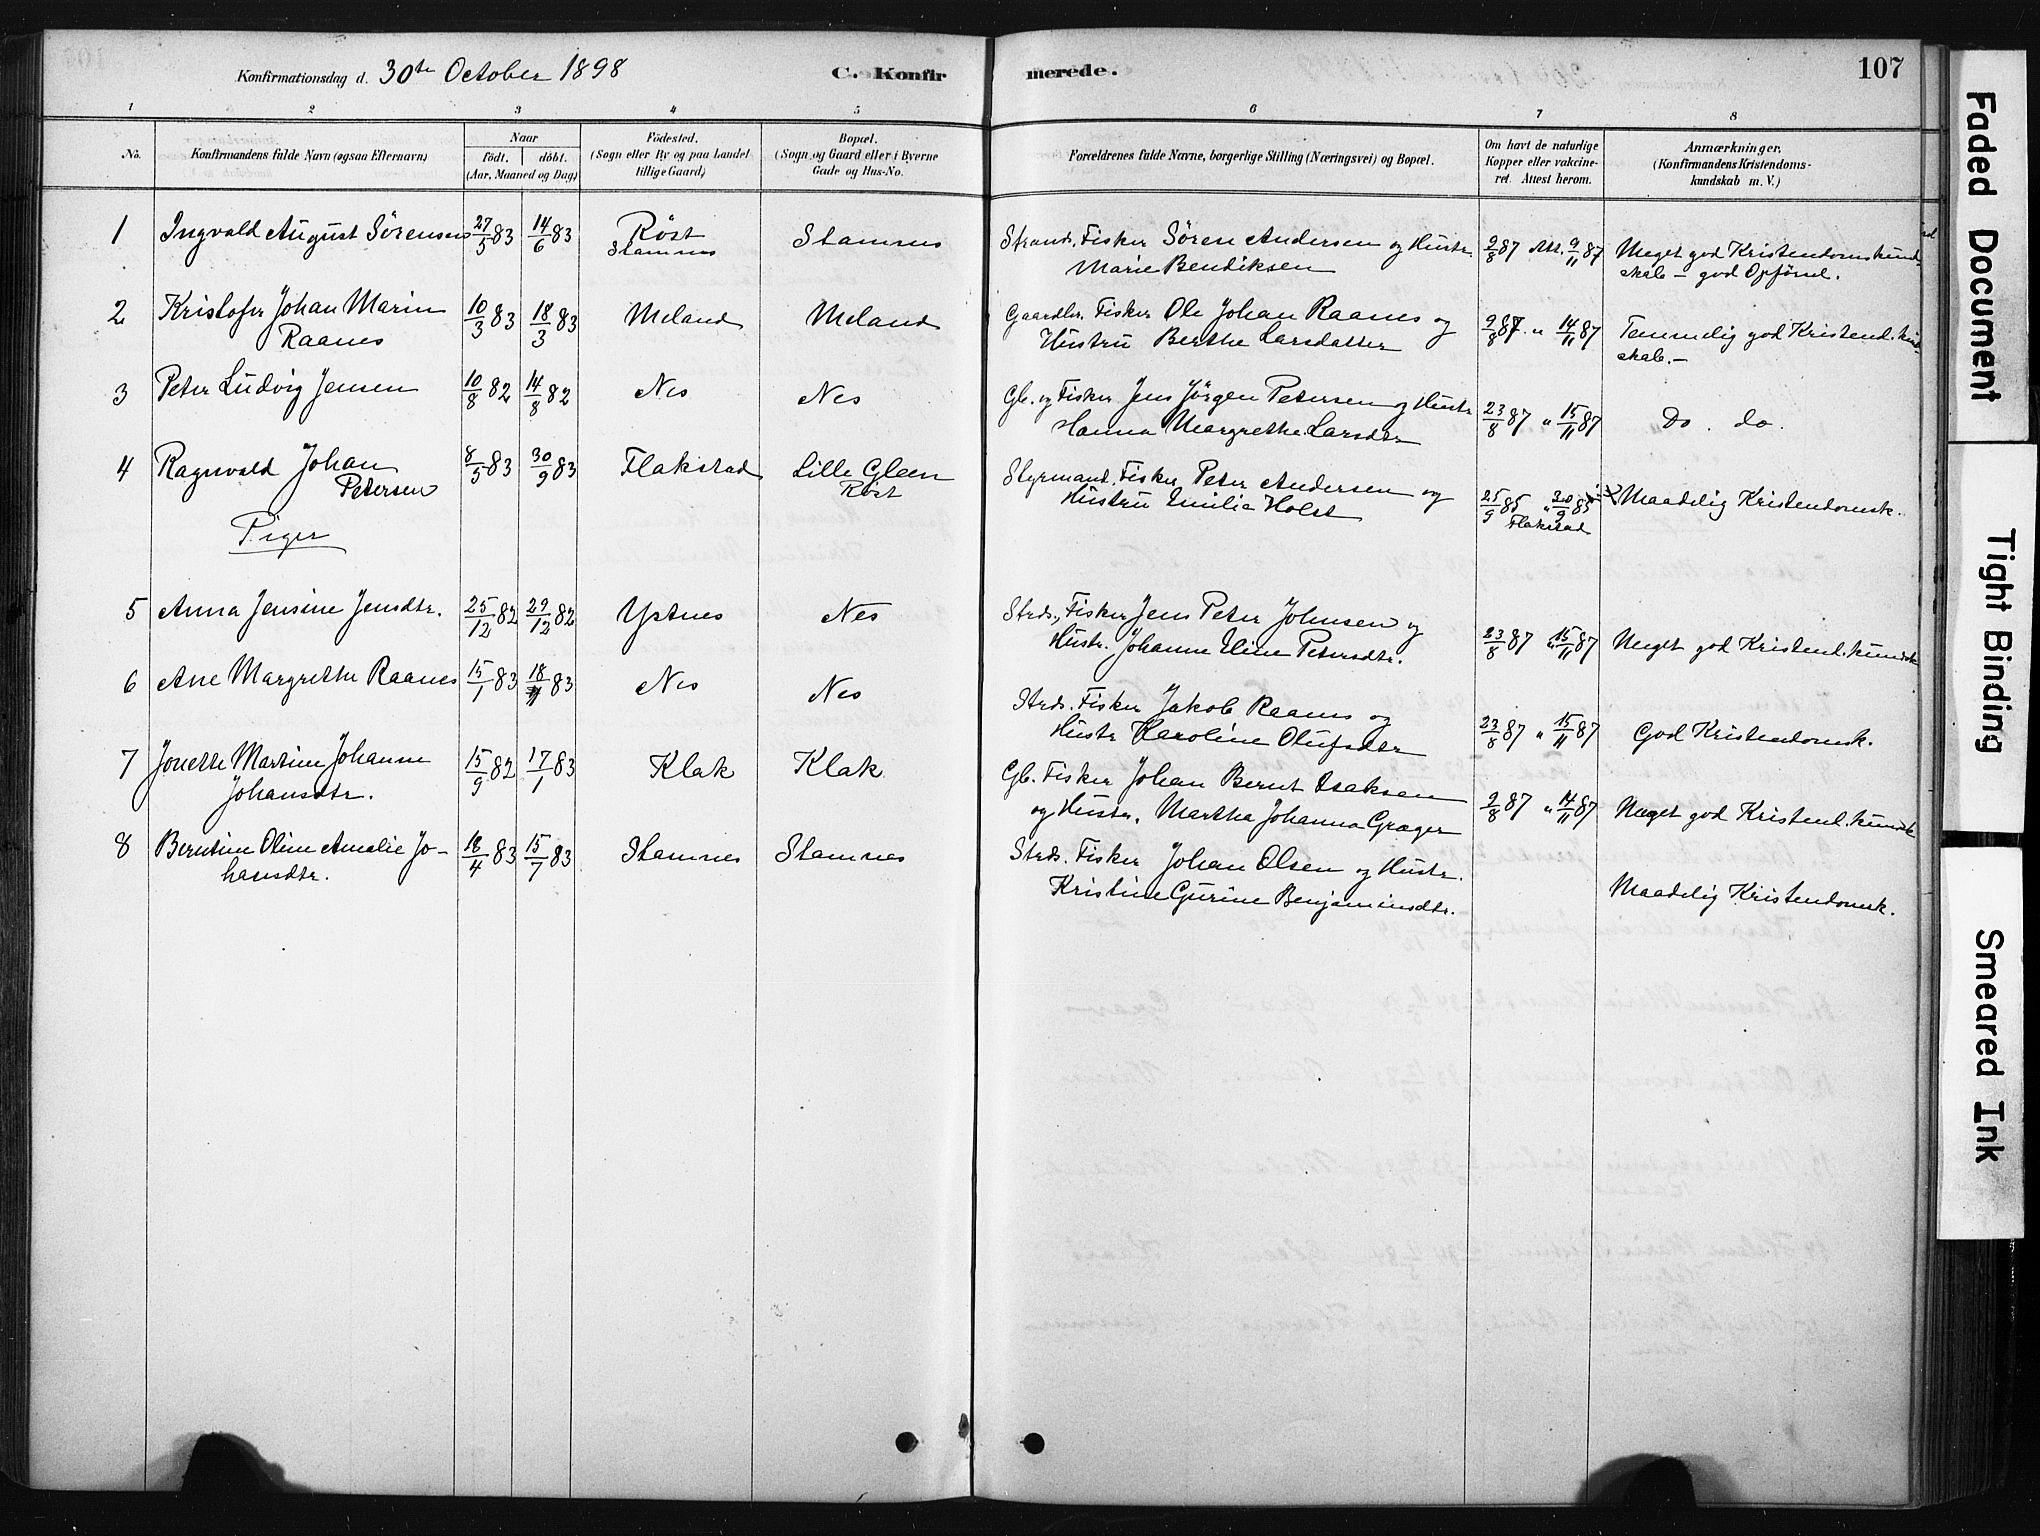 Konfirmationsdag d. 30te October 1898
C. Konfirmerede.
107
1 2 3 4 5 6 7 8
No.
Konfirmandens fulde Navn (ogsaa Efternavn)
Naar
födt. döbt.
(Aar, Maaned og Dag)
Födested.
(Sogn eller By og paa Landet
tillige Gaard)
Bopæl.
(Sogn og Gaard eller i Byerne
Gade og Hus-No.
Forældrenes fulde Navne, borgerlige Stilling (Næringsvei) og Bopæl.
Om havt de naturlige
Kopper eller vakcine-
ret. Attest herom.
Anmærkninger.
(Konfirmandens Kristendoms-
kundskab m. V.)
1 Ingvald August Sörensen 27/5 83 14/6 83 Röst Stamnes Strand. Fisker Sören Andersen og Hustr 9/8 87 Att. 9/11 87 Meget god Kristendomskund-
Stamnes Marie Bendiksen skab - god Opförsel.
2 Kristofer Johan Marin 10/3 83 18/3 83 Meland Meland Gaardbr. Fisker Ole Johan Raanes og 9/8 87 " 14/11 87 Temmelig god Kristend.kund-
Raanes Hustru Berthe Larsdatter skab.-
3 Peter Ludvig Jensen 10/8 82 14/8 82 Nes Nes Gb. og Fisker Jens Jörgen Petersen og Hustr 23/8 87 " 15/11 87 Do. do.
Hanna Margrethe Larsdtr
4 Ragnvald Johan 8/5 83 30/9 83 Flakstad Lille Gleen Styrmand. Fisker Peter Andersen og 25/9 85 " 30/9 85 Maadelig Kristendomsk.
Petersen Röst Hustru Emilie Holst Flakstad
Piger
5 Anna Jensine Jensdtr. 25/12 82 29/12 82 Ystnes Nes Strds. Fisker Jens Peter Johnsen og 23/8 87 " 15/11 87 Meget god Kristend.kundsk
Hustr. Johanne Eline Petersdtr.
6 Ane Margrethe Raanes 15/1 83 18/ 83 Nes Nes Strds. Fisker Jakob Raanes og 23/8 87 " 15/11 87 God Kristendomsk.
Hustr Karoline Olufsdtr
7 Jonette Martine Johanne 15/9 82 17/1 83 Klak Klak Gb. Fisker Johan Bernt Isaksen 9/8 87 " 14/11 87 Meget god Kristend.kundsk
Johansdtr. og Hustr. Martha Johanna Græger
8 Berntine Oline Amalie Jo- 18/4 83 15/7 83 Stamnes Stamnes Strds. Fisker Johan Olsen og Hustr. Maadelig Kristendomsk.
hansdtr. Kristine Gurine Benjaminsdtr.
Faded Document
Tight Binding
Smeared Ink